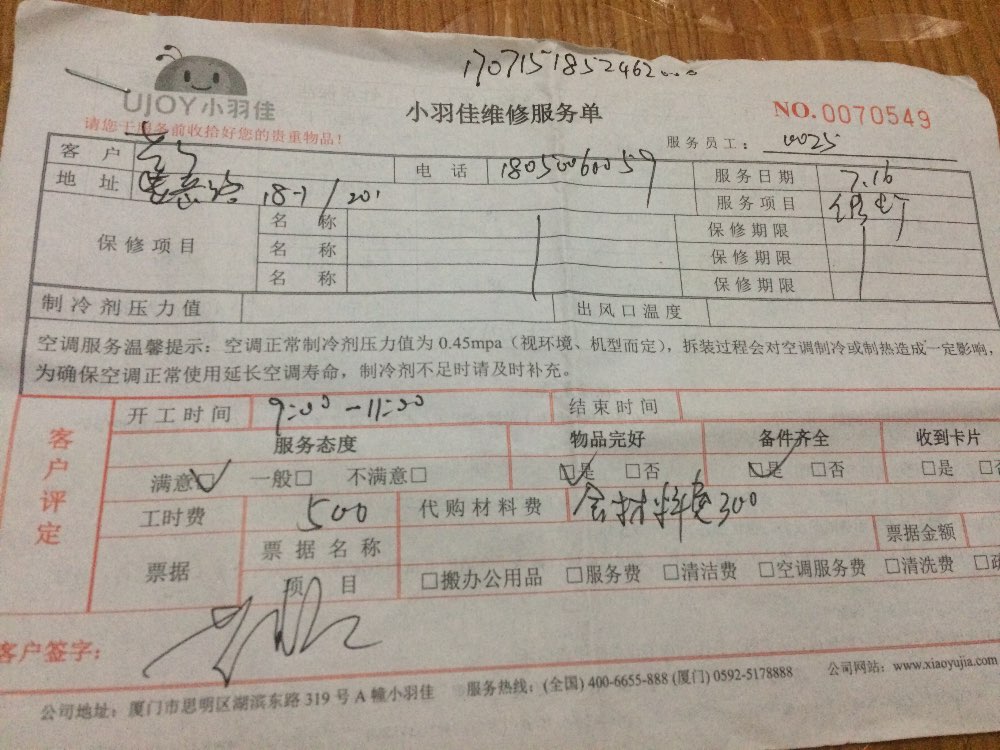 17071518524620
UJOY小羽佳
小羽佳维修服务单
NO.0070549
请您于服务前收拾好您的贵重物品!
服务员工: 0025
客户 电话 18050060059 服务日期 7.16
地址 18-7/201 服务项目
保修项目 名称 保修期限
名称 保修期限
名称 保修期限
制冷剂压力值 出风口温度
空调服务温馨提示:空调正常制冷剂压力值为 0.45mpa(视环境、机型而定),拆装过程会对空调制冷或制热造成一定影响,
为确保空调正常使用延长空调寿命,制冷剂不足时请及时补充。
客户评定
开工时间 9:00-11:00 结束时间
服务态度 物品完好 备件齐全 收到卡片
满意☑ 一般□ 不满意□ ☑是 □否 ☑是 □否 □是 □否
工时费 500 代购材料费 含材料费300
票据 票据名称 票据金额
项目 □搬办公用品 □服务费 □清洁费 □空调服务费 □清洗费 □疏
客户签字:
公司地址:厦门市思明区湖滨东路 319 号 A 幢小羽佳 服务热线:(全国) 400-6655-888 (厦门) 0592-5178888 公司网站:www.xiaoyujia.com